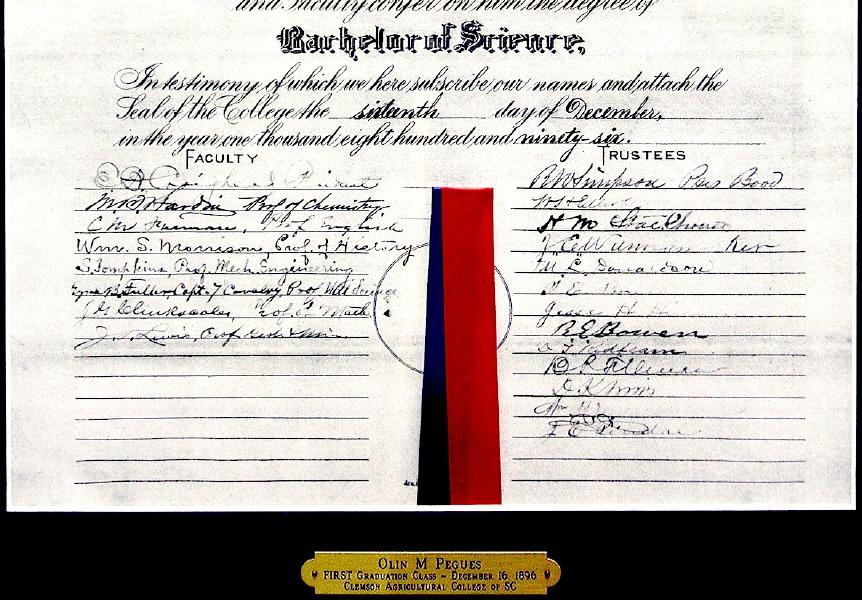 and Faculty confer on him the degree of
Bachelor of Science,
In testimony of which we here subscribe our names and attach the
Seal of the College the sixteenth day of December,
in the year one thousand eight hundred and ninety-six.
FACULTY
President
M.B. Hardin Prof of Chemistry
C M Furman, Prof English
Wm. S. Morrison, Prof. of History
S. Tompkins, Prof. Mech. Engineering
Fuller, Capt. 7 Cavalry, Prof Mil Science
J G Clinkscales, Prof. of Math
Lewis, Prof.
TRUSTEES
R W Simpson Pres Board
H M Stackhouse
M L Donaldson
Jesse H
B E Bowen
B R Tillman
D K Norris
OLIN M PEGUES
FIRST GRADUATION CLASS – DECEMBER 16, 1896
CLEMSON AGRICULTURAL COLLEGE OF SC